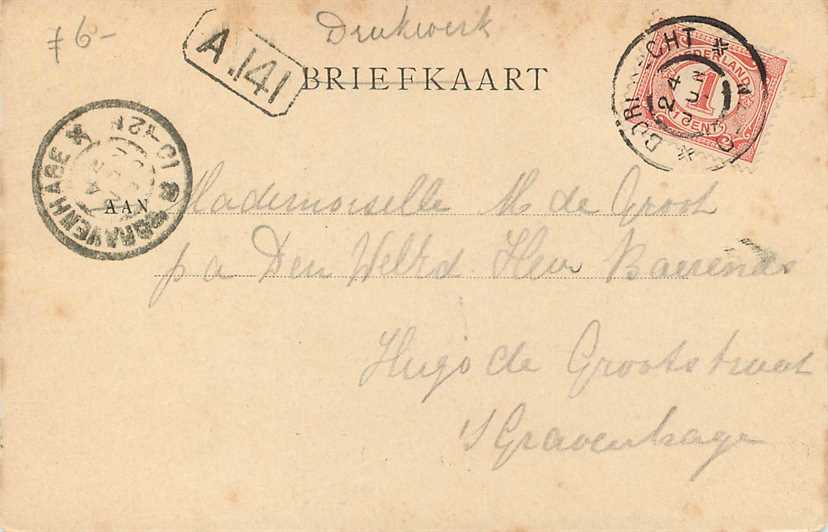 f 6-
Drukwerk
A.141
BRIEFKAART
DORDRECHT
24 JUN
NEDERLAND
1
CENT
'SGRAVENHAGE
10-12V
AAN
Mademoiselle M de Groot
p a Den WelEd Heer
Hugo de Grootstraat
's Gravenhage